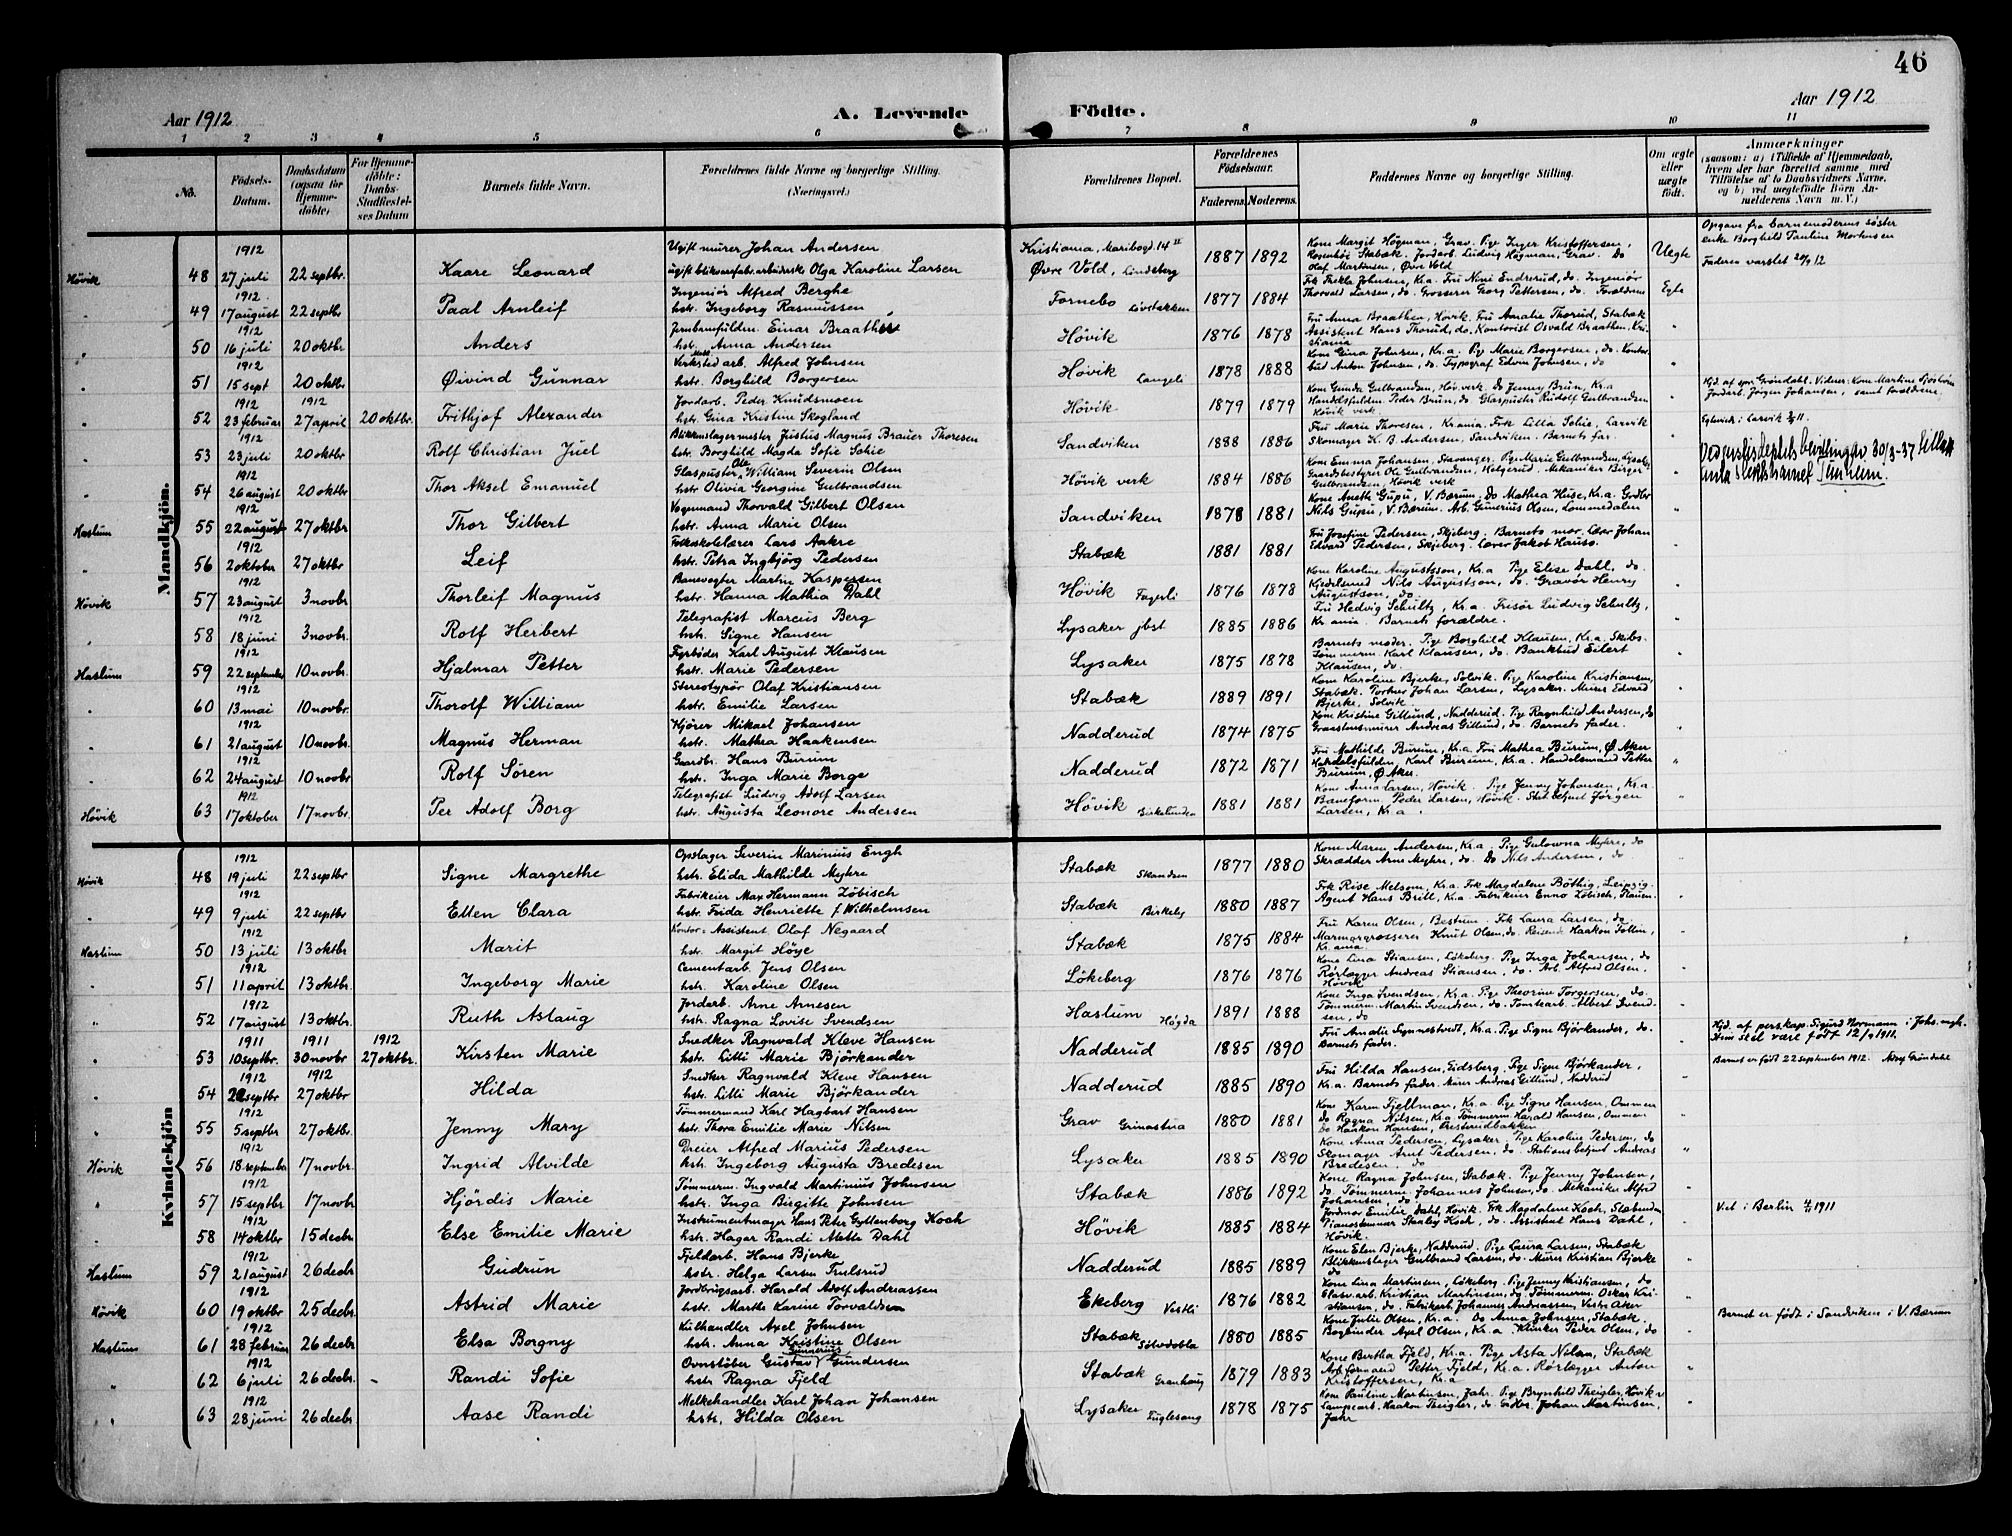 46
Aar 1912
A. Levende Födte.
Aar 1912
1 2 3 4 5 6 7 8 9 10 11
No.
Födsels-Datum.
Daabsdatum (ogsaa for Hjemme-döbte)
For Hjemme-döbte: Daabs-Stadfæstel-ses Datum
Barnets fulde Navn.
Forældrenes fulde Navne og borgerlige Stilling. (Næringsvei.)
Forældrenes Bopæl.
Forældrenes Födselsaar.
Faderens. Moderens.
Faddernes Navne og borgerlige Stilling.
Om ægte eller uægte født.
Anmærkninger
(saasom: a) i Tilfælde af Hjemmedaab,
hvem der har forrettet samme, med
Tilföielse af to Daabsvidners Navne,
og b) ved uægtefødte Börn An-
melderens Navn m. V.)
Mandkjön.
1912 Ugift murer Johan Andersen Kristiania, Maribogd. 14 Kone Margit Högman, Grav. Pige Inger Kristoffersen, Opgave fra barnemoderens søster
Hövik 48 27 juli 22 septbr. Kaare Leonard ugift blikensfabr.arbeiderske Olga Karoline Larsen Øvre Vold, Lindeberg 1887 1892 Rosenhöi Stabæk. Jordarb. Ludvig Högman, Grav. Do Olaf Martinsen, Øvre Vold Uegte enke Borghild Pauline Mortensen Faderen varslet 20/9 12
1912 Ingeniör Alfred Berghe Frk Thekla Johnsen, Kr.a. Frü Noni Endrerud, do. Ingeniör
49 17 august 22 septbr Paal Arnleif hstr. Ingeborg Rasmussen Fornebo 1877 1884 Thorvald Larsen, do. Grosserer Georg Pettersen, do. Forældrene Egte
1912 Jernbanefuldm. Einar Braathen Frü Anna Braathen, Hövik. Frü Amalie Thorud, Stabæk
" 50 16 juli 20 oktbr Anders hstr. Anna Andersen Hövik 1876 1878 Assistent Hans Thorud, do. Kontorist Osvald Braathen, Kri-stiania "
1912 Verksted arb. Alfred Johnsen Kone Gina Johnsen, Kr.a. Pige Marie Borgersen, do. Kontor-
" 51 15 sept 20 oktbr. Øivind Gunnar hstr. Borghild Borgersen Hövik 1878 1888 bud Anton Johnsen, do. Typograf Edvin Johnsen, do "
1912 1912 Jordarb. Peder Knudsmoen Kone Gunda Gulbrandsen, Höv. verk, do Jenny Brün, Kr.a
" 52 23 februar 27 april 20 oktbr. Frithjof Alexander hstr. Gina Kristine Skogland Hövik 1879 1879 Handelsfuldm. Peder Brün, do Glaspuster Rudolf Gulbrandsen Hövik verk " Jordarb. Jörgen Johansen, samt forældrene
1912 Blikkenslagermester Justus Magnus Brauer Thoresen Frü Marie Thoresen, Kr.ania. Frk Lilla Solie, Larvik
" 53 23 juli 20 oktbr Rolf Christian Juel hstr. Borghild Magda Sofie Solie Sandviken 1888 1886 Skomager K. B. Andersen, Sandviken. Barnets far. "
1912 Glaspuster Ole William Severin Olsen Kone Emma Johansen, Stabæk, Lysaker. Pige Marie Gulbrandsen, Lysaker
" 54 26 august 20 oktbr Thor Aksel Emanuel hstr Olivia Georgine Gulbrandsen Hövik verk 1884 1886 Grundbestyrer Ole Gulbrandsen, Helgerud. Mekaniker Birger Gulbrandsen, Hövik verk
1912 Vognmand Thorvald Gilbert Olsen Kone Anette Gupu, V. Bærum, Do Mathea Huse, Kr.a. Grdbr
Haslum 55 22 august 27 oktbr. Thor Gilbert hstr. Anna Marie Olsen Sandviken 1878 1881 Nils Gupu, V. Bærum. Arb. Gunerius Olsen, Lommedalen "
1912 Folkeskolelærer Lars Aakre Frü Josefine Pedersen, Skjeberg. Barnets mor. Lærer Johan
" 56 2 oktober 27 oktbr Leif hstr. Petra Ingbjörg Pedersen Stabæk 1881 1881 Edvard Pedersen, Skjeberg. Lærer Jakob Hauso. "
1912 Banevogter Martin Kaspersen Kone Karoline Augustsson, Kr.a Pige Elise Dahl, do.
Hövik 57 23 august 3 novbr Thorleif Magnus hstr. Hanna Mathia Dahl Hövik Fagerli 1876 1878 Kjedelsmed Nils Augustson, do. Gravör Henry Augustson, do "
1912 Telegrafist Marcus Berg Frü Hedvig Schultz, Kr.a. Frisör Ludvig Schultz,
" 58 18 juni 3 novbr. Rolf Herbert hstr. Signe Hansen Lysaker jbst 1885 1886 Kr.ania. Barnets forældre. "
1912 Fyrböder Karl August Klausen Barnets moder. Pige Borghild Klausen, Kr.a. Skibs-
Haslum 59 22 september 10 novbr. Hjalmar Petter hstr. Marie Pedersen Lysaker 1875 1878 tömmerm. Karl Klausen, do. Bankbud Eilert Klausen, do. "
1912 Stereotypör Olaf Kristiansen Kone Karoline Bjerke, Solvik. Pige Karoline Kristiansen,
" 60 13 mai 10 novbr. Thorolf William hstr. Emilie Larsen Stabæk 1889 1891 Stabæk. Portner Johan Larsen, Lysaker. Murer Edvard Bjerke, Solvik. "
1912 Kjörer Mikael Johansen Kone Kristine Gillund, Nadderud. Pige Ragnhild Andersen, do
" 61 21 august 10 novbr. Magnus Herman hstr. Mathea Haakensen Nadderud 1874 1875 Graastensmurer Andreas Gillund, do. Barnets fader. "
1912 Gaardbr. Hans Burum Frü Mathilde Burum, Kr.a. Frü Mathea Burum, Ø. Aker
" 62 24 august 10 novbr. Rolf Sören hstr. Inga Marie Borge Nadderud 1872 1871 Handelsfuldm. Karl Burum, Kr.a. Handelsmand Petter Burum, Ø Aker. "
1912 Telegrafist Ludvig Adolf Larsen Kone Anna Larsen, Hövik. Pige Jenny Johansen, Kr.a.
Hövik 63 17 oktober 17 novbr. Per Adolf Borg hstr. Augusta Leonore Andersen Hövik Birkelunden 1881 1881 Baneform. Peder Larsen, Hövik. Jörgen Larsen, Kr.a. "
Kvindekjön
1912 Opslager Severin Marinius Engh Kone Maren Andersen, Kr.a. Pige Gulowna Myhre, do
Hövik 48 19 juli 22 septbr Signe Margrethe hstr. Elida Mathilde Myhre Stabæk Skandsen 1877 1880 Skrædder Arne Myhre, do. Do Nils Andersen, do "
1912 Fabrikeier Max Hermann Zöbisch Frk Rise Melsom, Kr.a. Frk Magdalene Böthig, Leipzig.
" 49 9 juli 22 septbr Ellen Clara hstr. Frida Henriette f. Wilhelmsen Stabæk Birkeby 1880 1887 Agent Hans Brill, Kr.a. Fabrikeier Enno Zöbisch, Plauen "
1912 Kontor-Assistent Olaf Negaard Frü Karen Olsen, Bestum. Frk Laura Larsen, do.
Haslum 50 13 juli 13 oktbr Marit hstr. Margit Höye Stabæk 1875 1884 Marmorgrosserer Knut Olsen, do. Reisende Haakon Tollin, Kr.ania "
1912 Cementarb. Jens Olsen Kone Lina Stiansen, Lökeberg. Pige Inga Johansen, do
" 51 11 april 13 oktbr. Ingeborg Marie hstr. Karoline Olsen Lökeberg 1876 1876 Rörlægger Andreas Stiansen, do. Arb. Alfred Olsen, Hövik "
1912 Jordarb. Arne Arnesen Kone Inga Svendsen, Kr.a. Pige Theorine Torgersen, do.
" 52 17 august 13 oktbr. Ruth Aslaug hstr. Ragna Lovise Svendsen Haslum Högda 1891 1888 Tömmerm. Martin Svendsen, do. Tomtearb. Albert Svend-sen, do "
1911 1911 1912 Snedker Ragnvald Kleve Hansen Frü Amalie Synnestvedt, Kr.a. Pige Signe Björkander, do. Hjd. af perskap. Sigurd Normann i Johs.mgh.
" 53 10 septbr. 30 novbr 27 oktbr. Kirsten Marie hstr. Lilli Marie Björkander Nadderud 1885 1890 Barnets fader. " skal være født 12/9 1911.
1912 1912 Snedker Ragnvald Kleve Hansen Frü Hilda Hansen, Eidsberg. Pige Signe Björkander, Barnet er født 22 september 1912. Grøndahl
" 54 22 septbr 27 oktbr Hilda hstr. Lilli Marie Björkander Nadderud 1885 1890 Kr.a. Barnets fader. Murer Andreas Gillund, Nadderud "
1912 Tömmermand Karl Hagbart Hansen Kone Karen Fjellman, Kr.a. Pige Signe Hansen, Ommen
" 55 5 septbr 27 oktbr. Jenny Mary hstr. Thora Emilie Marie Nilsen Grav Grinastua 1880 1881 do Ragna Nilsen, Kr.a Tömmerm Harald Hansen, Ommen Do Haakon Hansen, Presterudbakken
1912 Dreier Alfred Marius Pedersen Kone Anna Pedersen, Lysaker. Pige Karoline Pedersen, do
Hövik 56 18 september 17 novbr. Ingrid Alvilde hstr. Ingeborg Augusta Bredesen Lysaker 1885 1890 Skomager Arnt Pedersen, do. Stationsbetjent Andreas Bredesen, do "
1912 Tömmerm. Ingvald Martinius Johnsen Kone Ragna Johnsen, Stabæk. Pige Jenny Johnsen,
" 57 15 septbr 17 novbr Hjördis Marie hstr. Inga Birgitte Johnsen Stabæk 1886 1892 do. Tömmerm Johannes Johnsen, do. Mekaniker Alfred Johansen, do "
1912 Instrumentmager Hans Peter Gyllenborg Koch Jordmor Emilie Dahl, Hövik. Frk Magdalene Koch, Slæbenden Viet i Berlin 1911
" 58 14 oktbr 15 decbr. Else Emilie Marie hstr. Hagar Randi Alette Dahl Hövik 1885 1884 Pianostemmer Stanley Koch, do. Assistent Hans Dahl, Hövik. "
1912 Fjeldarb. Hans Bjerke Kone Elen Bjerke, Nadderud. Pige Laura Larsen, Stabæk
Haslum 59 21 august 26 decbr Gudrun hstr. Helga Larsen Trulsrud Nadderud 1885 1889 Blikkenslager Gulbrand Larsen, do. Murer Kristian Bjerke do "
1912 Jordbrugsarb. Harald Adolf Andreassen Kone Lina Martinsen, Lökeberg. Pige Jenny Kristiansen, do
Hövik 60 19 oktbr 25 decbr. Astrid Marie hstr. Marthe Karine Torvaldsen Ekeberg Vestli 1876 1882 Glasv.arb. Kristian Martinsen, do. Tömmerm. Oskar Kri-stiansen, do. Fabrikarb. Johannes Andreassen, Vestre Aker " Barnet er født i Sandviken i V. Bærum
1912 Kulhandler Axel Johnsen Kone Julie Olsen, Kr.a. Do Anna Johnsen, Stabæk.
Haslum 61 28 februar 26 decbr Elsa Borgny hstr. Anna Kristine Olsen Stabæk Solvedobla 1880 1885 Bogbinder Axel Olsen, Kr.a. Peder Olsen, do "
1912 Ovnstöber Gustav Gunnerius Gundersen Kone Bertha Fjeld, Kr.a. Pige Asta Nilsen, Stabæk
" 62 6 juli 26 decbr. Randi Sofie hstr Ragna Fjeld Stabæk Granhaug 1879 1883 Arb.formand Petter Fjeld, Kr.a. Rörlægger Anton Kristoffersen, Kr.a "
1912 Melkehandler Karl Johan Johansen Kone Pauline Martinsen, Jahr. Pige Brynhild Theigler, Hövik v
" 63 28 juni 26 decbr Aase Randi hstr. Hilda Olsen Lysaker Fuglesang 1878 1875 Lampearb. Haakon Theigler, do. Grdbr. Johan Martinsen, Jahr "